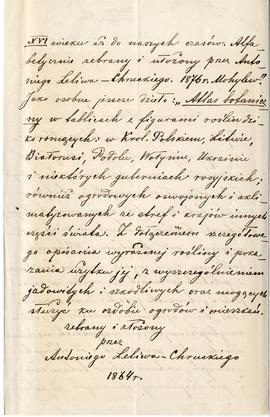 XVI wieku aż do naszych czasów. Alfa
betycznie zebrany i ułożony przez Anto
niego Leliwa-Chruckiego. 1876 r. Mohylew."
Jako osobne jeszcze dzieło: „Atlas botanicz
ny w tablicach z figurami roślin dzi
ko rosnących: w Król. Polskiem, Litwie,
Białorusi, Podolu, Wołyniu, Ukrainie
i niektórych guberniach rosyjskich;
również ogrodowych oswojonych i akli
matyzowanych ze stref i krajów innych
części świata. Z dołączeniem szczegółowe
go opisania wyrażonej rośliny i poka
zania użytku jej, z wyszczególnieniem
jadowitych i szkodliwych oraz mogących
służyć ku ozdobie ogrodów i mieszkań.
zebrany i złożony
przez
Antoniego Leliwa-Chruckiego
1864 r.